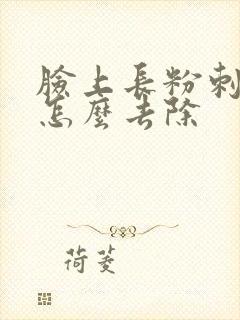 臉上長粉刺
怎麼去除
荷菱